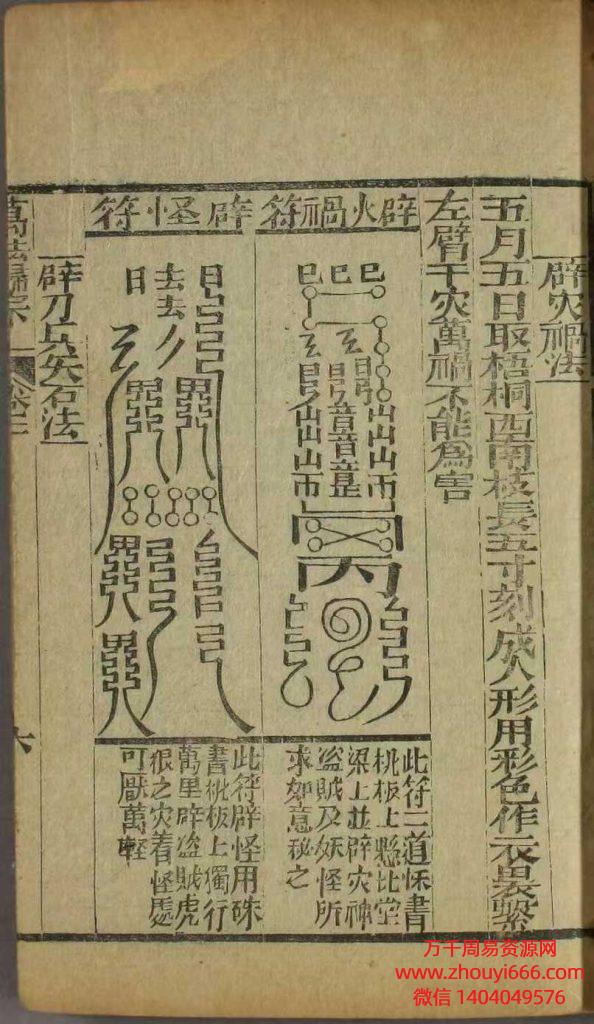 辟灾禍法
五月五日取梧桐西南枝長五寸刻成人形用彩色作衣裳繫
左臂千灾萬禍不能為害
辟火禍符
此符二道硃書
桃板上懸北堂
梁上並辟灾神
盗賊及妖怪所
求如意秘之
辟怪符
此符辟怪用硃
書桃板上獨行
萬里辟盗賊虎
狼之灾着怪處
可厭萬輕
辟刀兵矢石法
萬法歸宗
六
万千周易资源网
www.zhouyi666.com
微信 1404049576